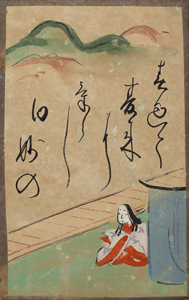 春過て
夏来に
けらし
白妙の